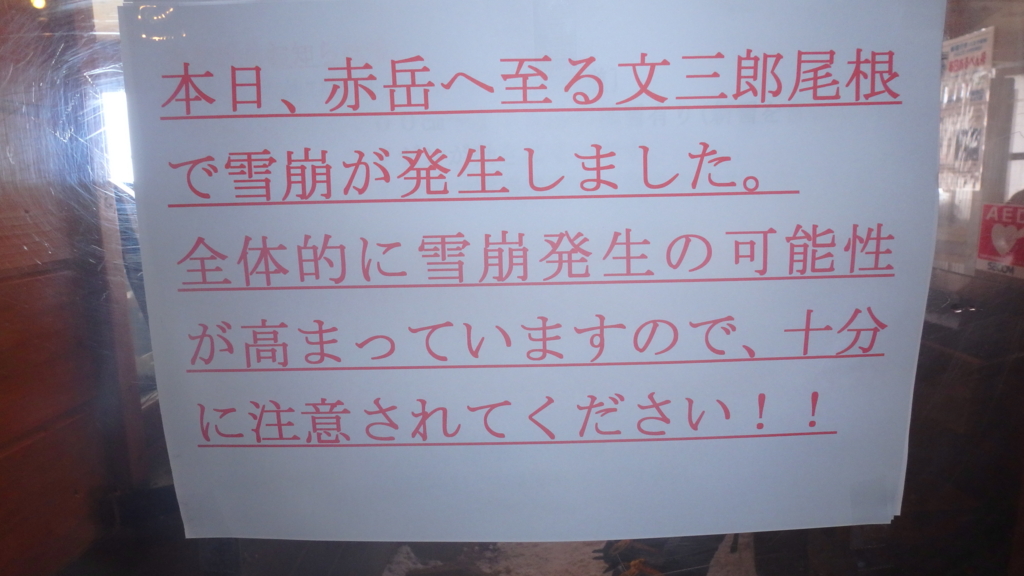 本日、赤岳へ至る文三郎尾根
で雪崩が発生しました。
全体的に雪崩発生の可能性
が高まっていますので、十分
に注意されてください！！
AED